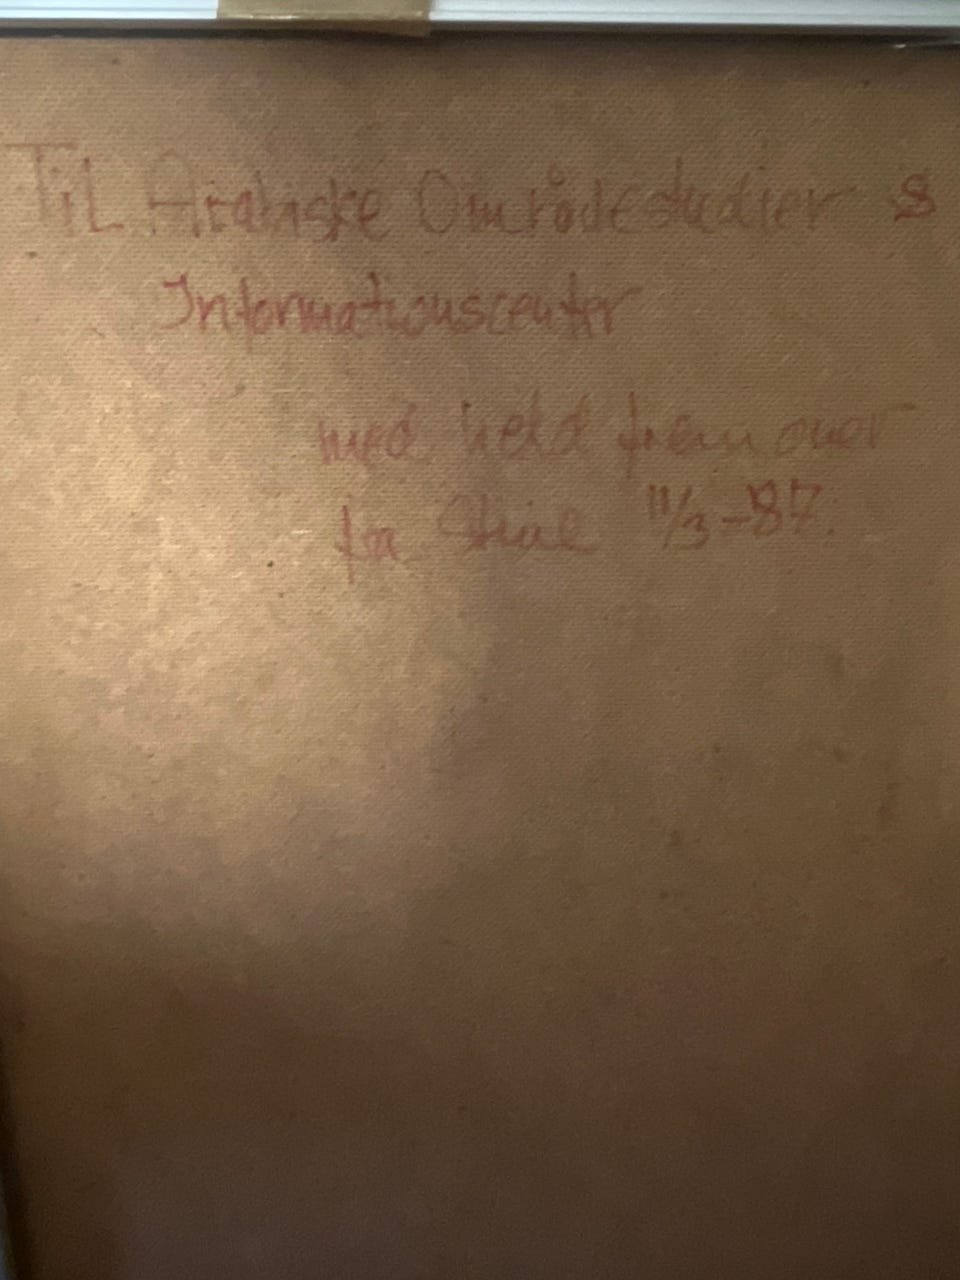 Til Arabiske Områdestudier s
Informationscenter
med held frem over
fra 11/3-87.